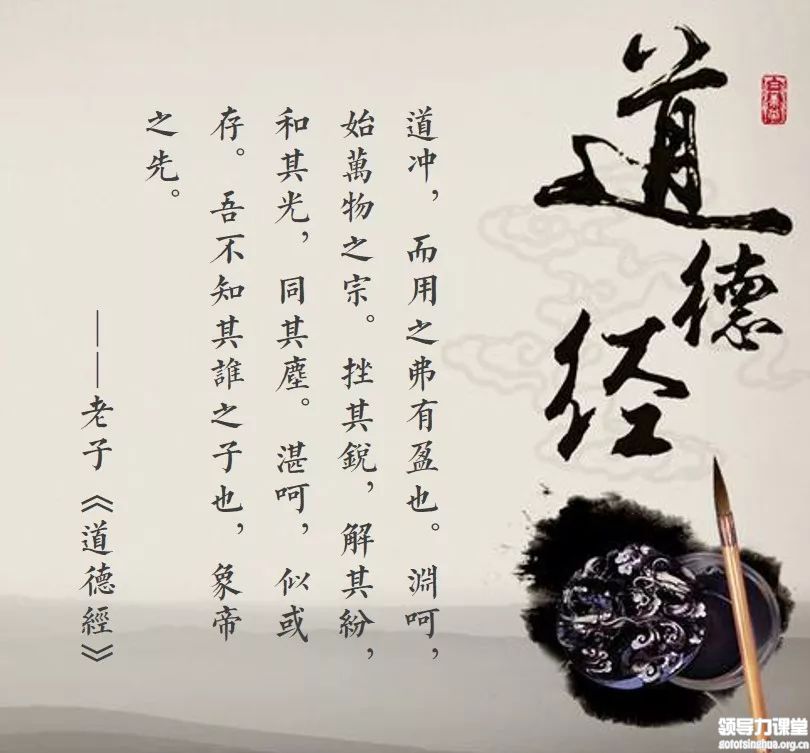 道德经
道冲，而用之弗有盈也。渊呵，
始萬物之宗。挫其銳，解其紛，
和其光，同其塵。湛呵，似或
存。吾不知其誰之子也，象帝
之先。
——老子《道德經》
领导力课堂
gototsinghua.org.cn